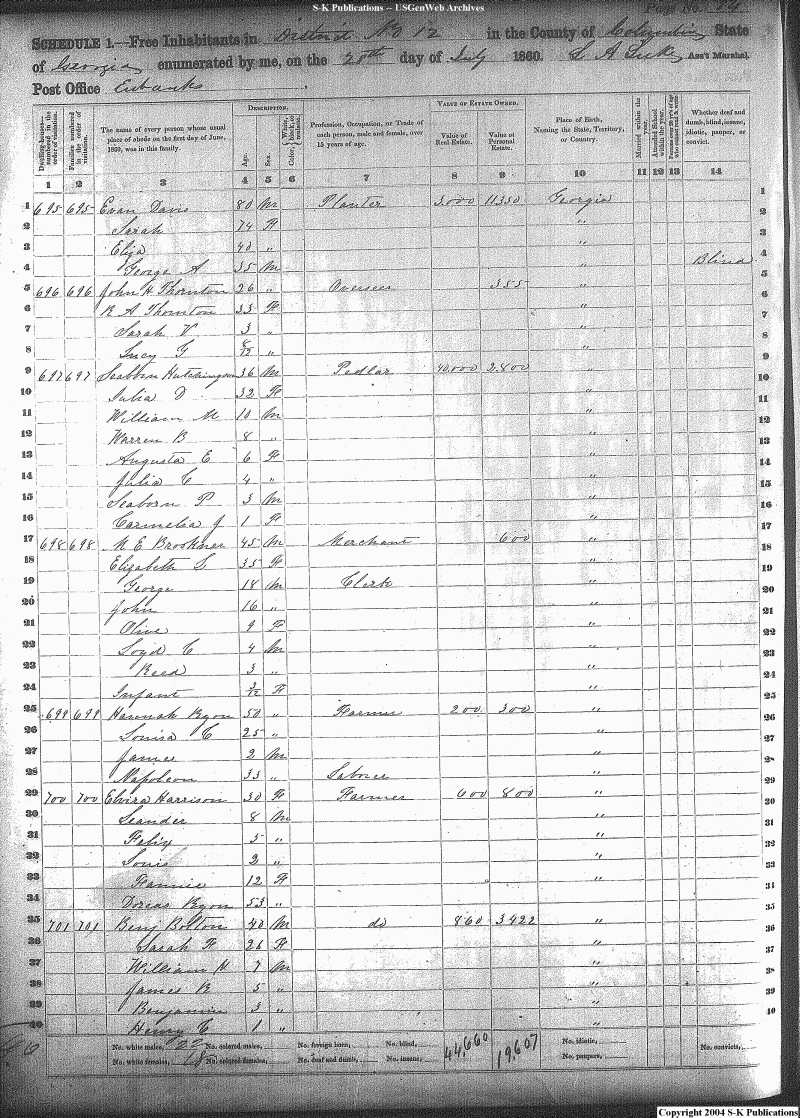 S-K Publications -- USGenWeb Archives
Page No. 84
SCHEDULE 1.—Free Inhabitants in District No 12 in the County of Columbia State
of Georgia enumerated by me, on the 20th day of July 1860. Ass't Marshal.
Post Office Eubanks
DESCRIPTION. VALUE OF ESTATE OWNED.
Dwelling-houses—numbered in the order of visitation. Families numbered in the order of visitation. The name of every person whose usual place of abode on the first day of June, 1860, was in this family. Age. Sex. Color, White, black, or mulatto. Profession, Occupation, or Trade of each person, male and female, over 15 years of age. Value of Real Estate. Value of Personal Estate. Place of Birth, Naming the State, Territory, or Country. Married within the year. Attended School within the year. Persons over 20 y'rs of age who cannot read & write. Whether deaf and dumb, blind, insane, idiotic, pauper, or convict.
1 2 3 4 5 6 7 8 9 10 11 12 13 14
1 695 695 Evan Davis 80 M Planter 3.000 11350 Georgia 1
2 Sarah 74 F " 2
3 Eliza 40 " " 3
4 George A 35 M " Blind 4
5 696 696 John H Thornton 26 " Overseer 355 " 5
6 R A Thornton 33 F " 6
7 Sarah V 3 " " 7
8 Lucy G 8/12 " " 8
9 697 697 Seaborn Hutchingson 36 M Pedlar 40.000 2.800 " 9
10 Julia D 32 F " 10
11 William M 10 M " 11
12 Warren B 8 " " 12
13 Augusta E 6 F " 13
14 Julia C 4 " " 14
15 Seaborn P 3 M " 15
16 Carmelia J 1 F " 16
17 698 698 M E Brookner 45 M Merchant 600 " 17
18 Elizabeth L 35 F " 18
19 George 18 M Clerk " 19
20 John 16 " " 20
21 Olive 9 F " 21
22 Loyd C 4 M " 22
23 Reed 3 " " 23
24 Infant 3/12 F " 24
25 699 699 Hannah Ryon 50 " Farmer 200 300 " 25
26 Louisa C 25 " " 26
27 James 2 M " 27
28 Napoleon 33 " Laborer " 28
29 700 700 Elvira Harrison 30 F Farmer 600 800 " 29
30 Leander 8 M " 30
31 Felix 5 " " 31
32 Louis 2 " " 32
33 Fannie 12 F " 33
34 Dorcas Ryon 53 " " 34
35 701 701 Benj Bolton 40 M do 860 3422 " 35
36 Sarah F 26 F " 36
37 William H 7 M " 37
38 James R 5 " " 38
39 Benjamin 3 " " 39
40 Henry C 1 " " 40
No. white males, 22 No. colored males, No. foreign born, No. blind, 44,660 19,607 No. idiotic, No. convicts,
No. white females, 18 No. colored females, No. deaf and dumb, No. insane, No. paupers,
Copyright 2004 S-K Publications